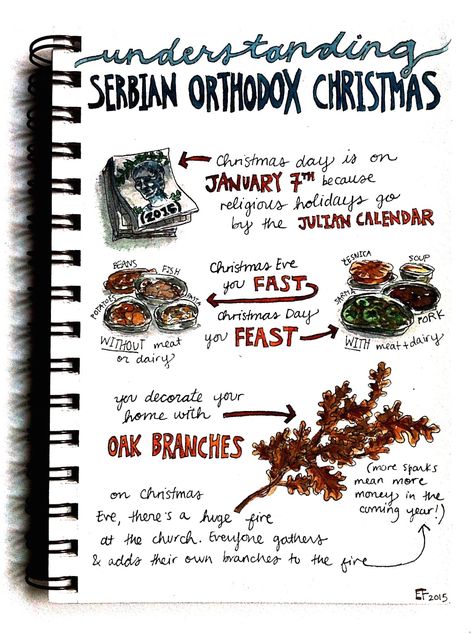 understanding
SERBIAN ORTHODOX CHRISTMAS
Christmas day is on
JANUARY 7TH because
religious holidays go
by the JULIAN CALENDAR
(2015)
BEANS
FISH
POTATOES
PASTA
WITHOUT meat
or dairy
Christmas Eve
you FAST
Christmas Day
you FEAST
ČESNICA
SOUP
PORK
WITH meat + dairy
you decorate your
home with
OAK BRANCHES
on Christmas
Eve, there's a huge fire
at the church. Everyone gathers
& adds their own branches to the fire
(more sparks
mean more
money in the
coming year!)
EF 2015